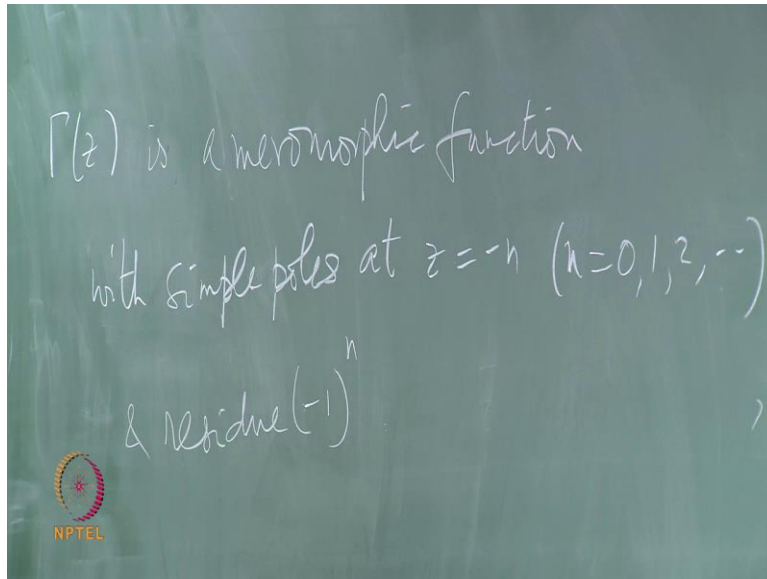 Γ(z) is a meromorphic function
with simple poles at z = -n (n=0,1,2,--)
& residue (-1)^n
NPTEL